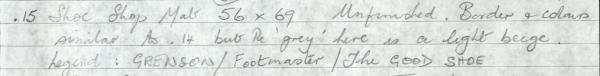 .15 Shoe Shop Mat 56 x 69 Unfinished. Border & colours
similar to .14 but the 'grey' here is a light beige.
Legend: GRENSON / Footmaster / The GOOD SHOE